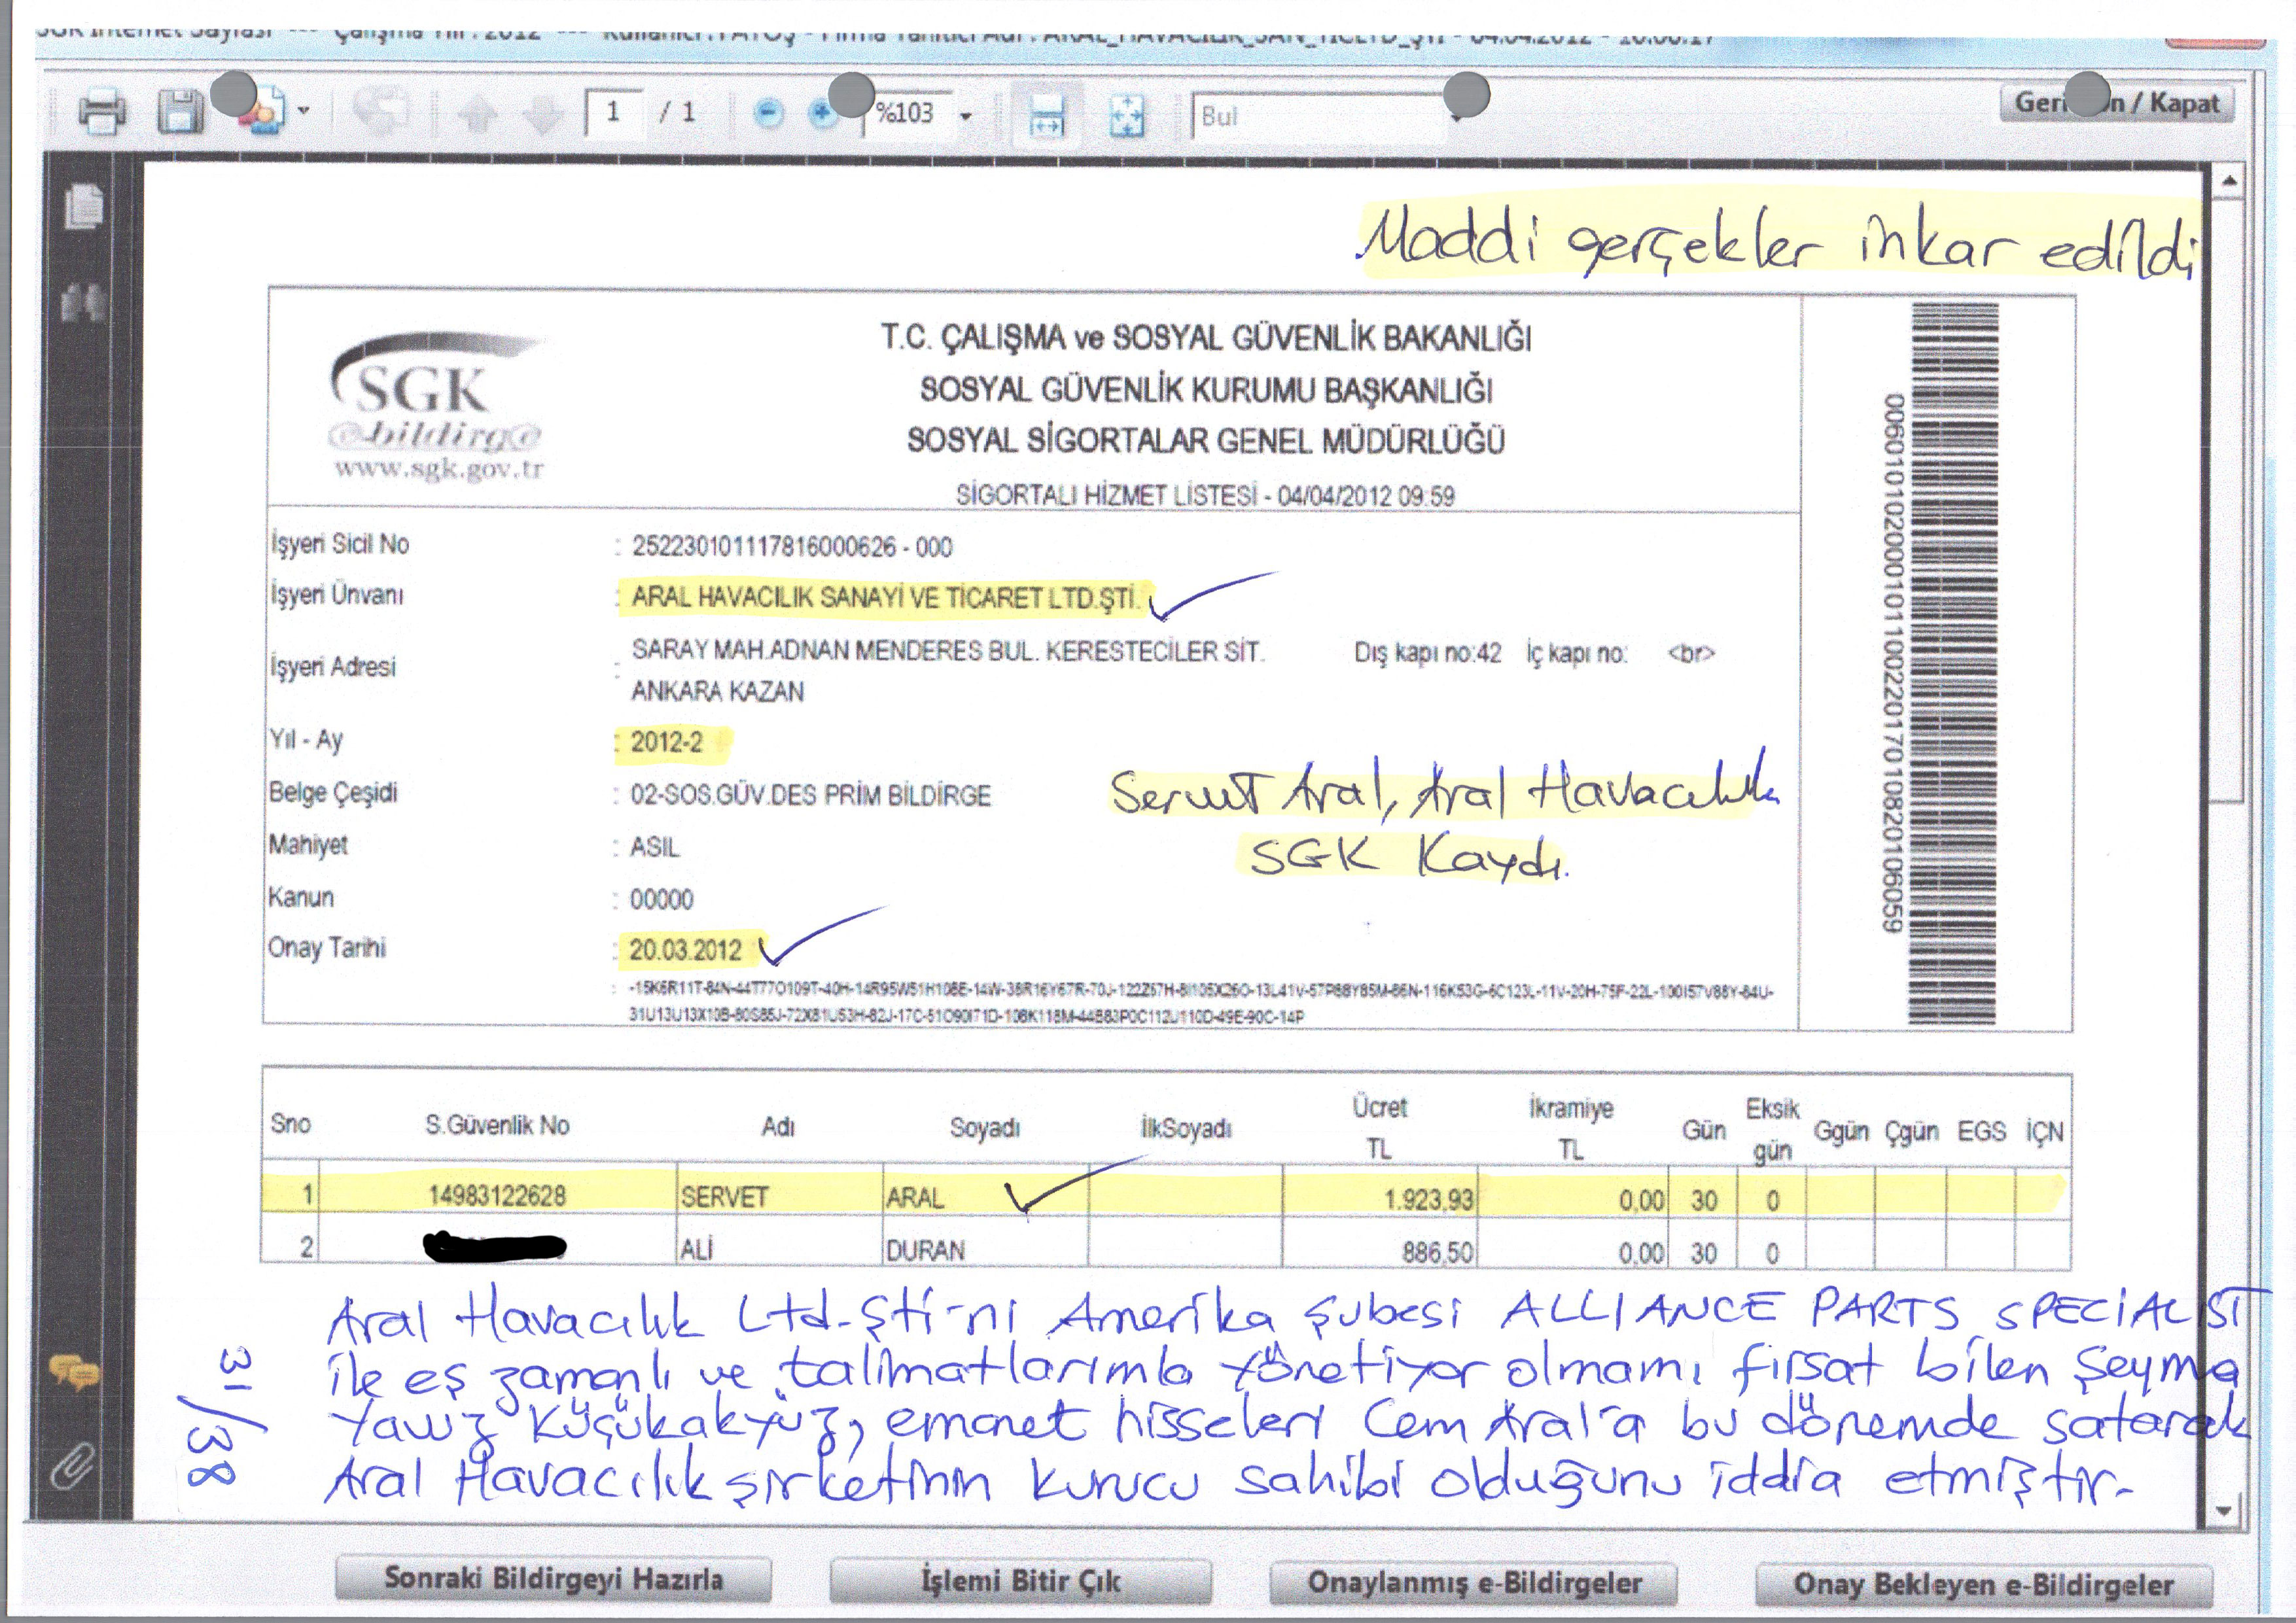 SGK İnternet Sayfası --- Çalışma Yılı : 2012 --- Kullanıcı : FATOŞ - Firma Tanıtıcı Adı : ARAL_HAVACILIK_SAN_TİCLTD_ŞTİ - 04.04.2012 - 10:00:17
1 / 1 %103 Bul
Maddi gerçekler inkar edildi
SGK
e-bildirge
www.sgk.gov.tr
T.C. ÇALIŞMA ve SOSYAL GÜVENLİK BAKANLIĞI
SOSYAL GÜVENLİK KURUMU BAŞKANLIĞI
SOSYAL SİGORTALAR GENEL MÜDÜRLÜĞÜ
SİGORTALI HİZMET LİSTESİ - 04/04/2012 09:59
İşyeri Sicil No : 2522301011117816000626 - 000
İşyeri Ünvanı : ARAL HAVACILIK SANAYİ VE TİCARET LTD.ŞTİ.
İşyeri Adresi : SARAY MAH.ADNAN MENDERES BUL. KERESTECİLER SİT. Dış kapı no:42 İç kapı no: <br>
ANKARA KAZAN
Yıl - Ay : 2012-2
Belge Çeşidi : 02-SOS.GÜV.DES PRİM BİLDİRGE
Servet Aral, Aral Havacılık
SGK Kaydı.
Mahiyet : ASIL
Kanun : 00000
Onay Tarihi : 20.03.2012
Sno S.Güvenlik No Adı Soyadı İlkSoyadı Ücret TL İkramiye TL Gün Eksik gün Ggün Çgün EGS İÇN
1 14983122628 SERVET ARAL 1.923,93 0,00 30 0
2 ALİ DURAN 886,50 0,00 30 0
Aral Havacılık Ltd-Şti-ni Amerika şubesi ALLIANCE PARTS SPECIALIST
ile eş zamanlı ve talimatlarımla yönetiyor olmamı fırsat bilen Şeyma
Yavuz Küçükakyüz, emanet hisseleri Cem Aral'a bu dönemde satarak
Aral Havacılık şirketinin kurucu sahibi olduğunu iddia etmiştir-
31/38
Sonraki Bildirgeyi Hazırla İşlemi Bitir Çık Onaylanmış e-Bildirgeler Onay Bekleyen e-Bildirgeler